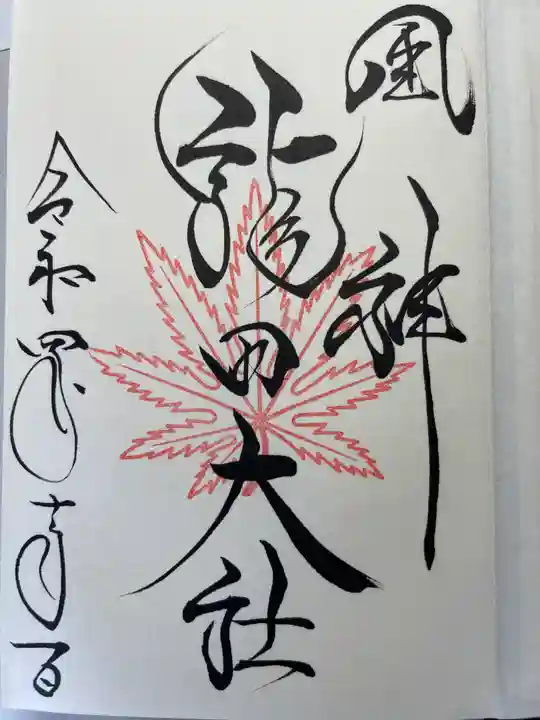 風神
龍田大社
令和四年十月一日